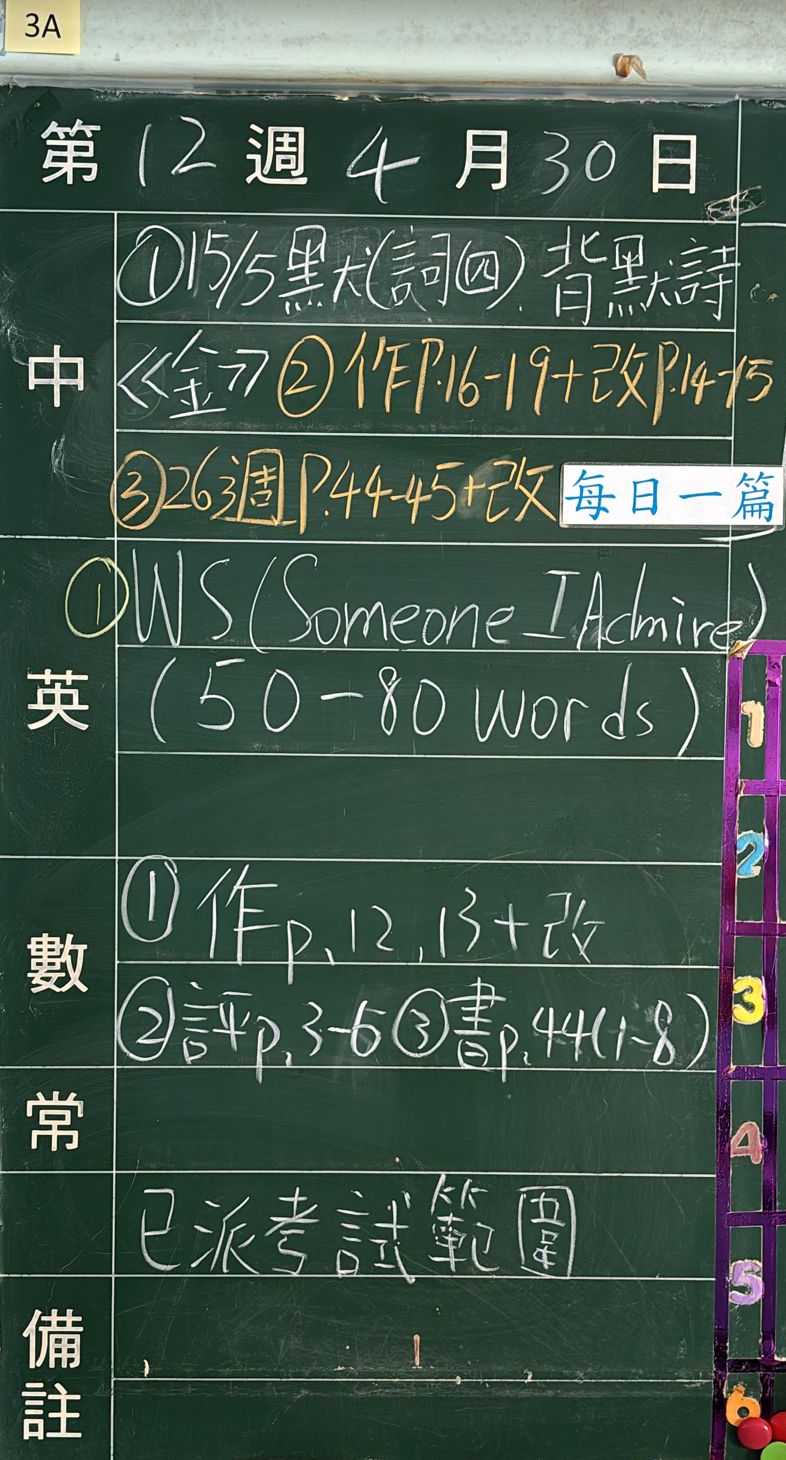 3A
第 12 週 4 月 30 日
中
①15/5默(詞四).背默詩
《金》②作P.16-19+改P.14-15
③26週P.44-45+改 每日一篇
英
①WS(Someone I Admire)
(50-80 words)
數
①作p.12,13+改
②評p.3-6③書p.44(1-8)
常
已派考試範圍
備註
1
2
3
4
5
6